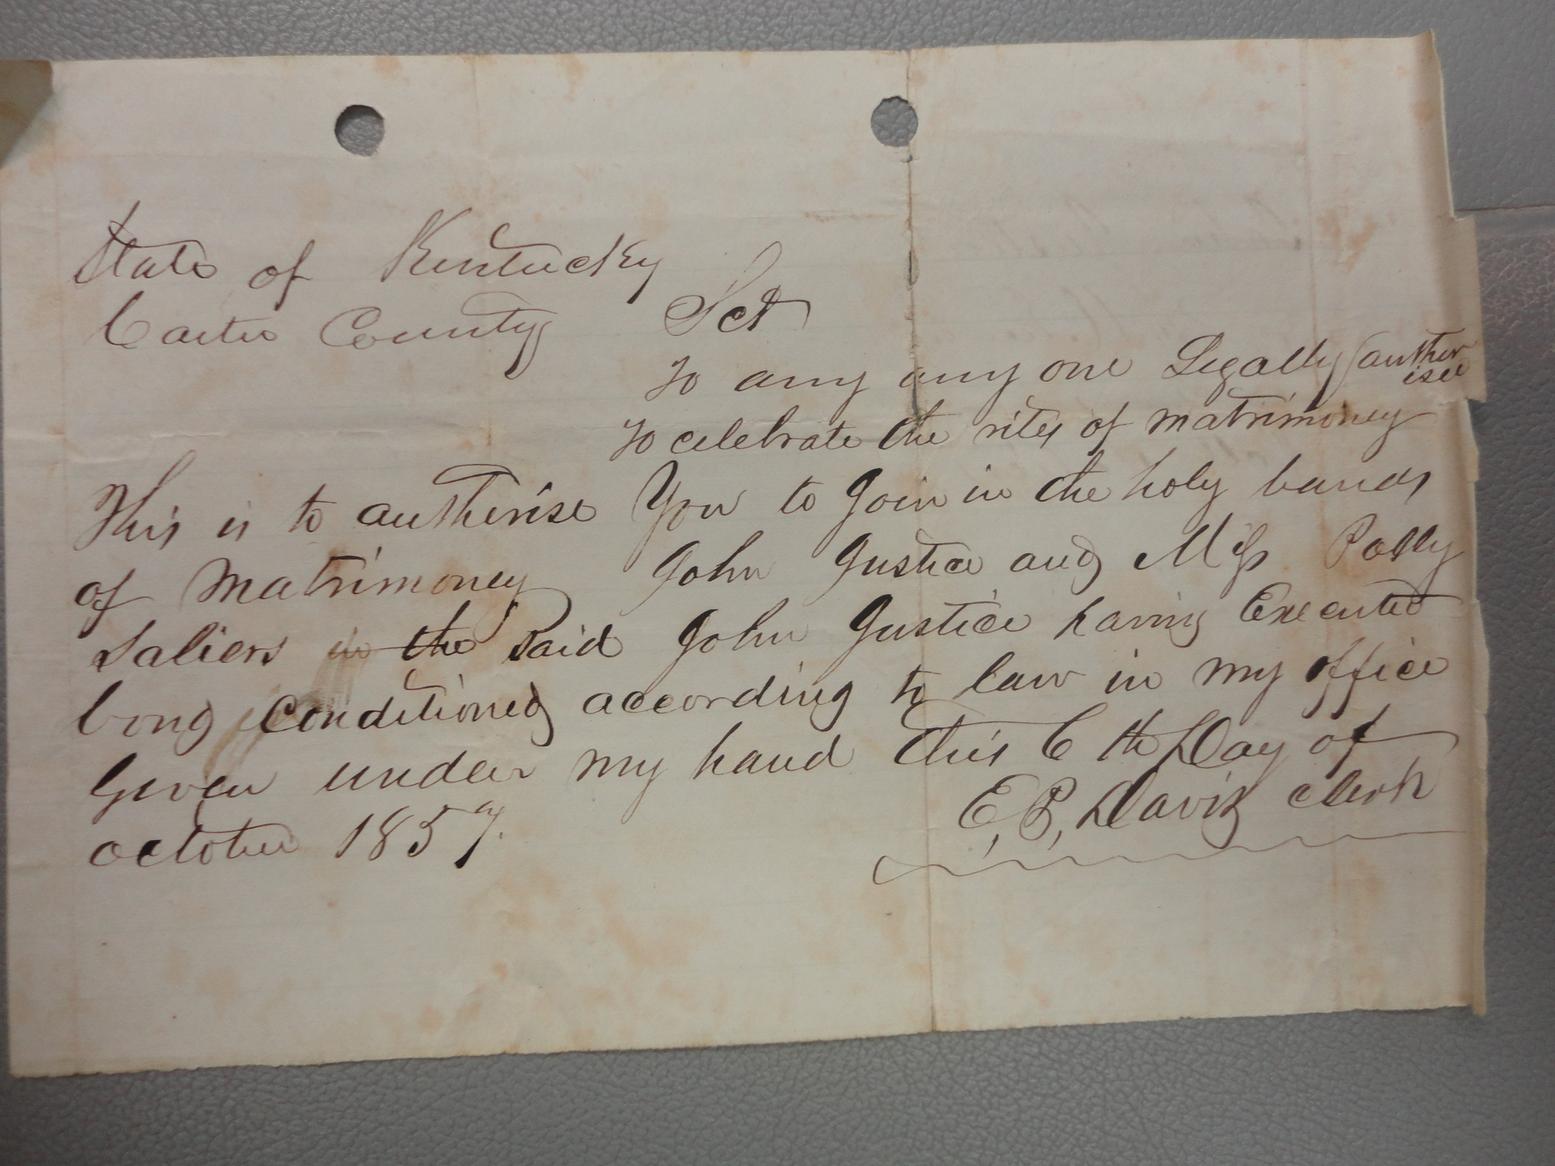 State of Kentucky
Carter County Sct
To any any one Legally autherisee
To celebrate the rites of matrimoney
This is to autherise You to Join in the holy bands
of Matrimoney John Justice and Miss Polly
Saliers in the Said John Justice having Executed
bond conditioned according to law in my office
Given under my hand this 6 th Day of
october 1857. E, P, Davis clerk